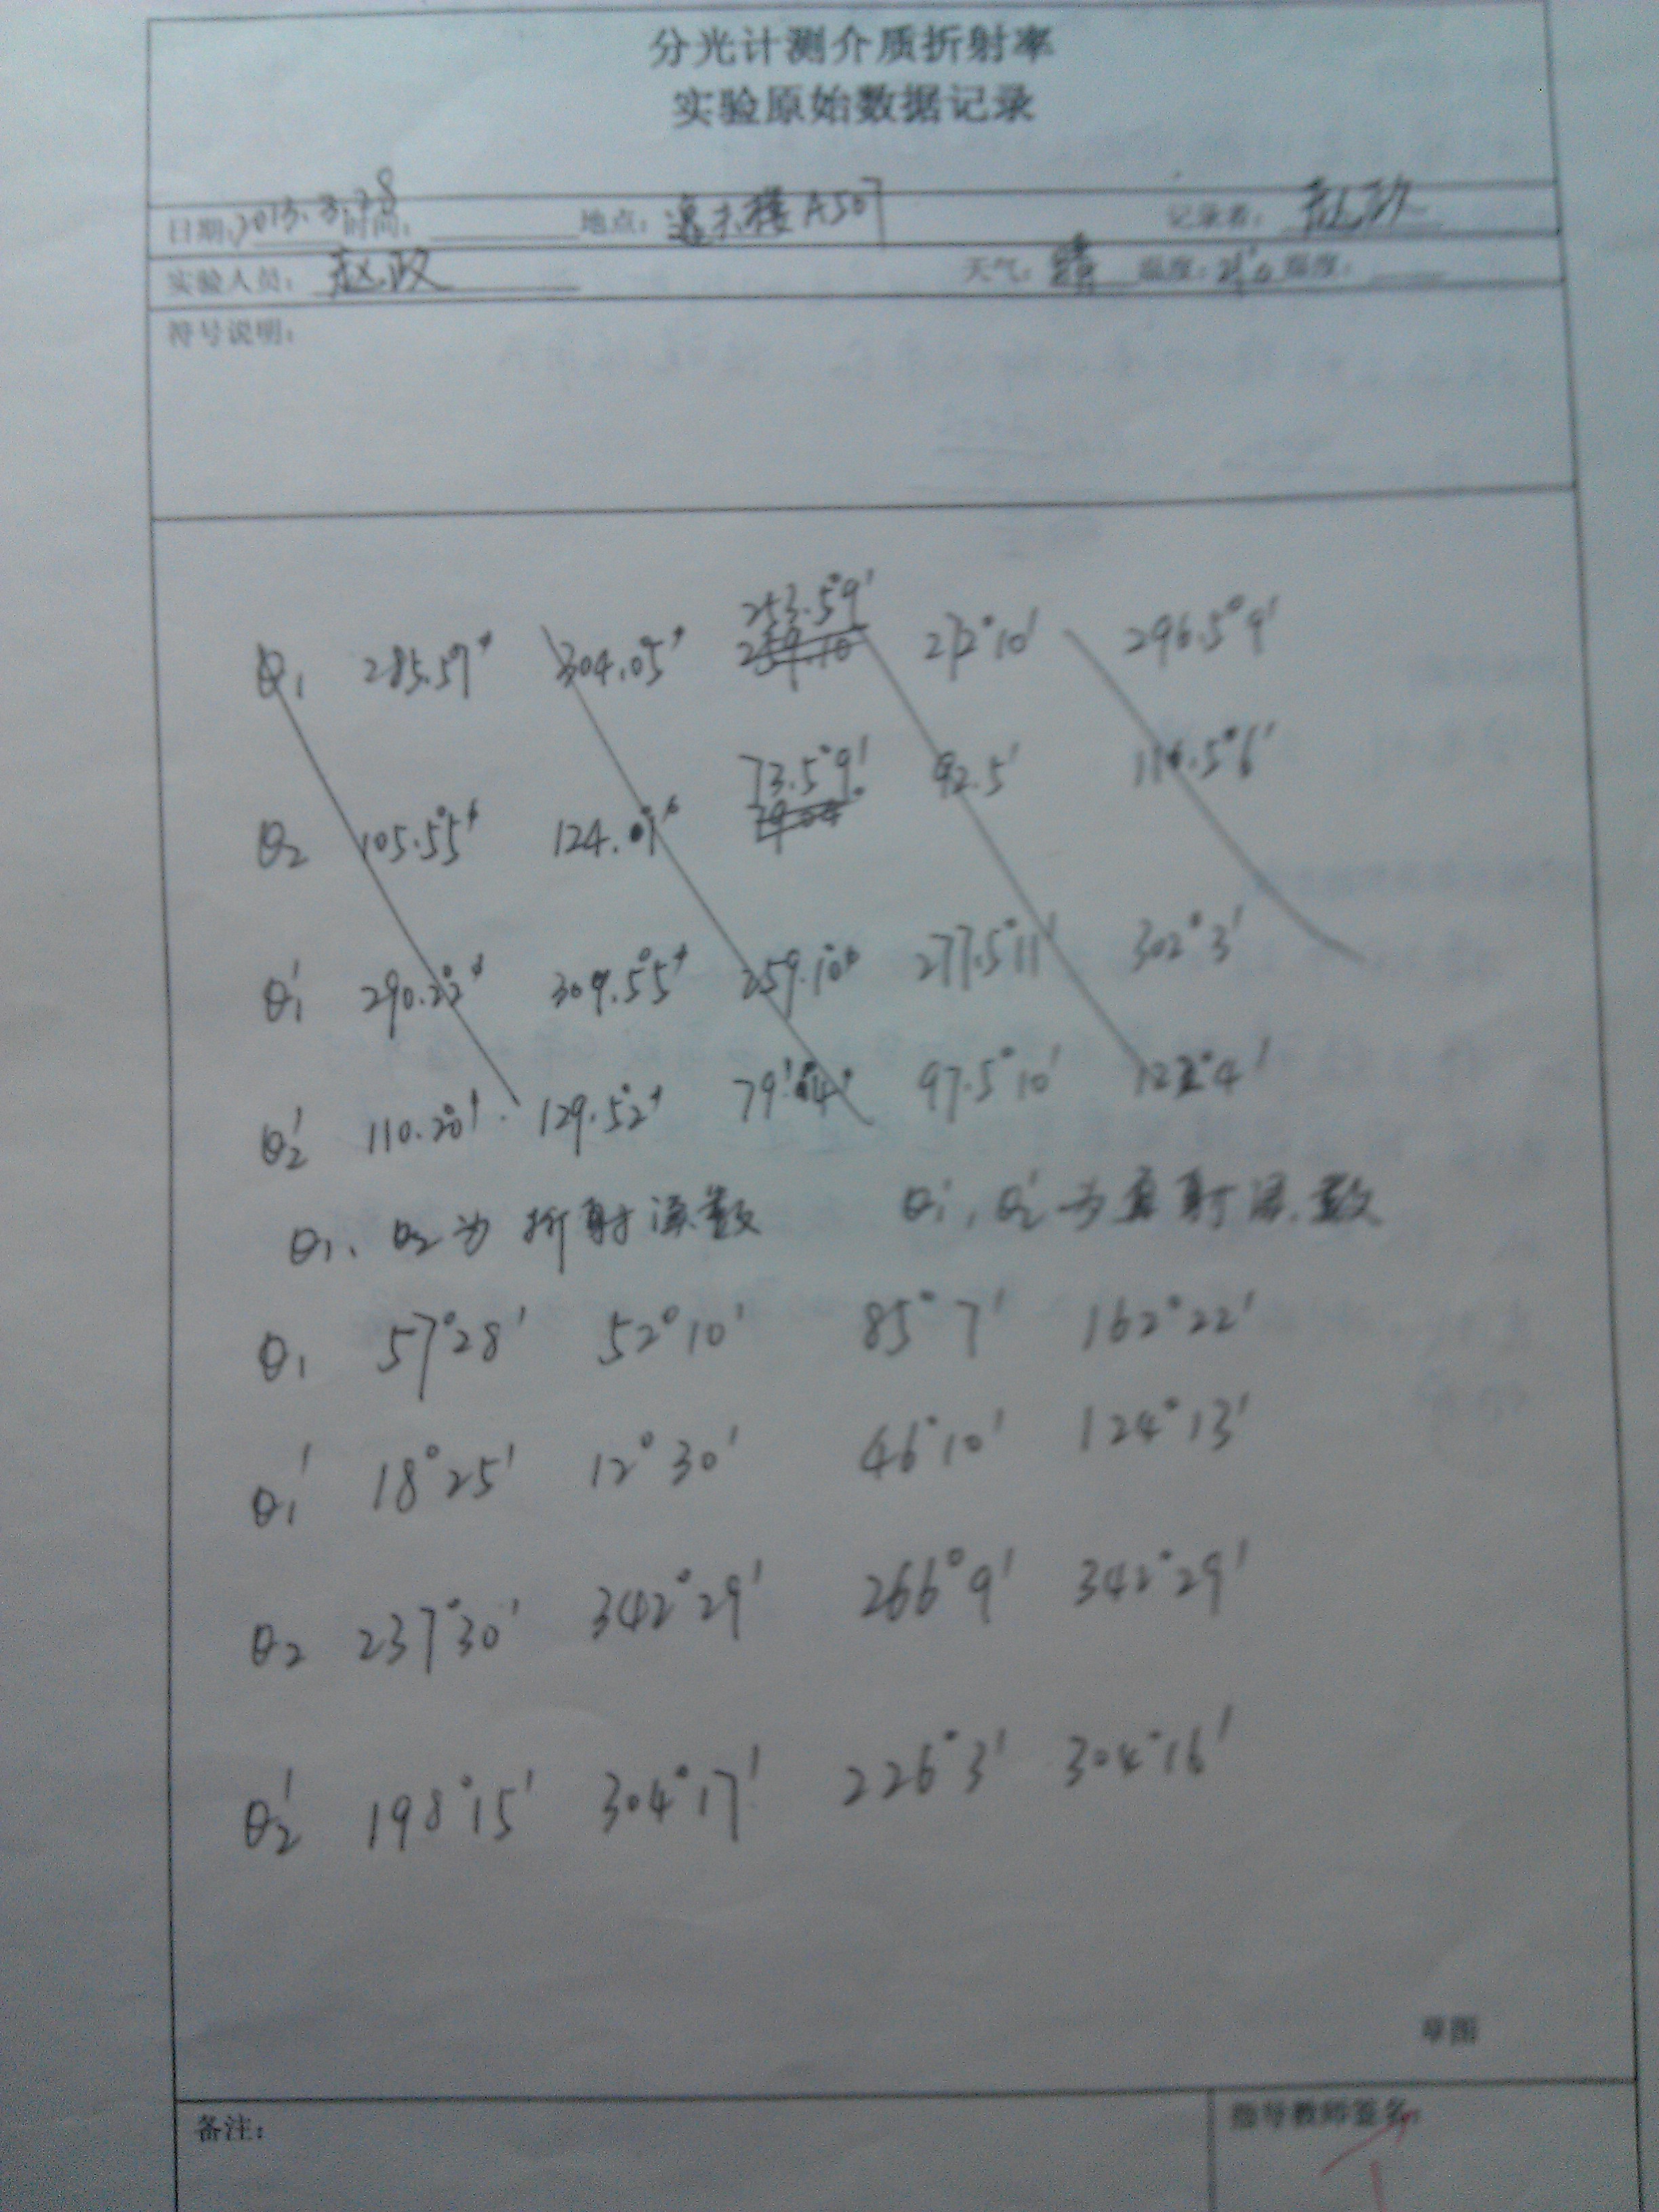 分光计测介质折射率
实验原始数据记录
日期: 2013.3.28 时间: 地点: 逸夫楼A507 记录者: 赵政
实验人员: 赵政 天气: 晴 温度: 湿度:
符号说明:
253.5°9'
θ₁ 285.57' 304.05' 272°10' 296.5°9'
73.5°9' 92.5' 116.5°6'
θ₂ 105.55' 124.07'
θ₁' 290.22' 309.55' 259.10' 277.5°11' 302°3'
θ₂' 110.20' 129.52' 79.04' 97.5°10' 122°4'
θ₁、θ₂为折射读数 θ₁', θ₂'为直射读数
θ₁ 57°28' 52°10' 85°7' 162°22'
θ₁' 18°25' 12°30' 46°10' 124°13'
θ₂ 237°30' 342°29' 266°9' 342°29'
θ₂' 198°15' 304°17' 226°3' 304°16'
草图
备注: 指导教师签名: